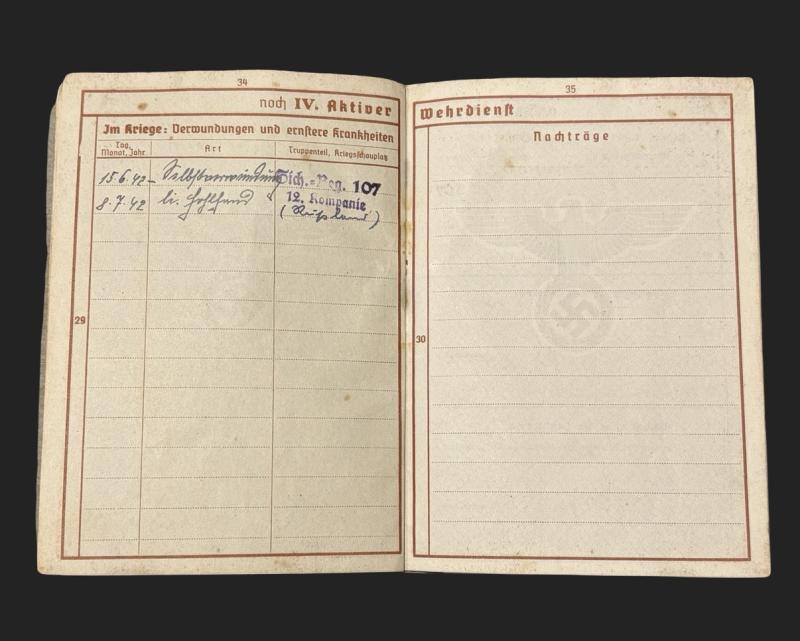 34
noch IV. Aktiver
Im Kriege: Verwundungen und ernstere Krankheiten
Tag, Monat, Jahr
Art
Truppenteil, Kriegsschauplatz
15.6.42 - Selbstverwundung Sich.-Reg. 107
8.7.42 li. Hohlhand 12. Kompanie
(Rußland)
29
35
Wehrdienst
Nachträge
30